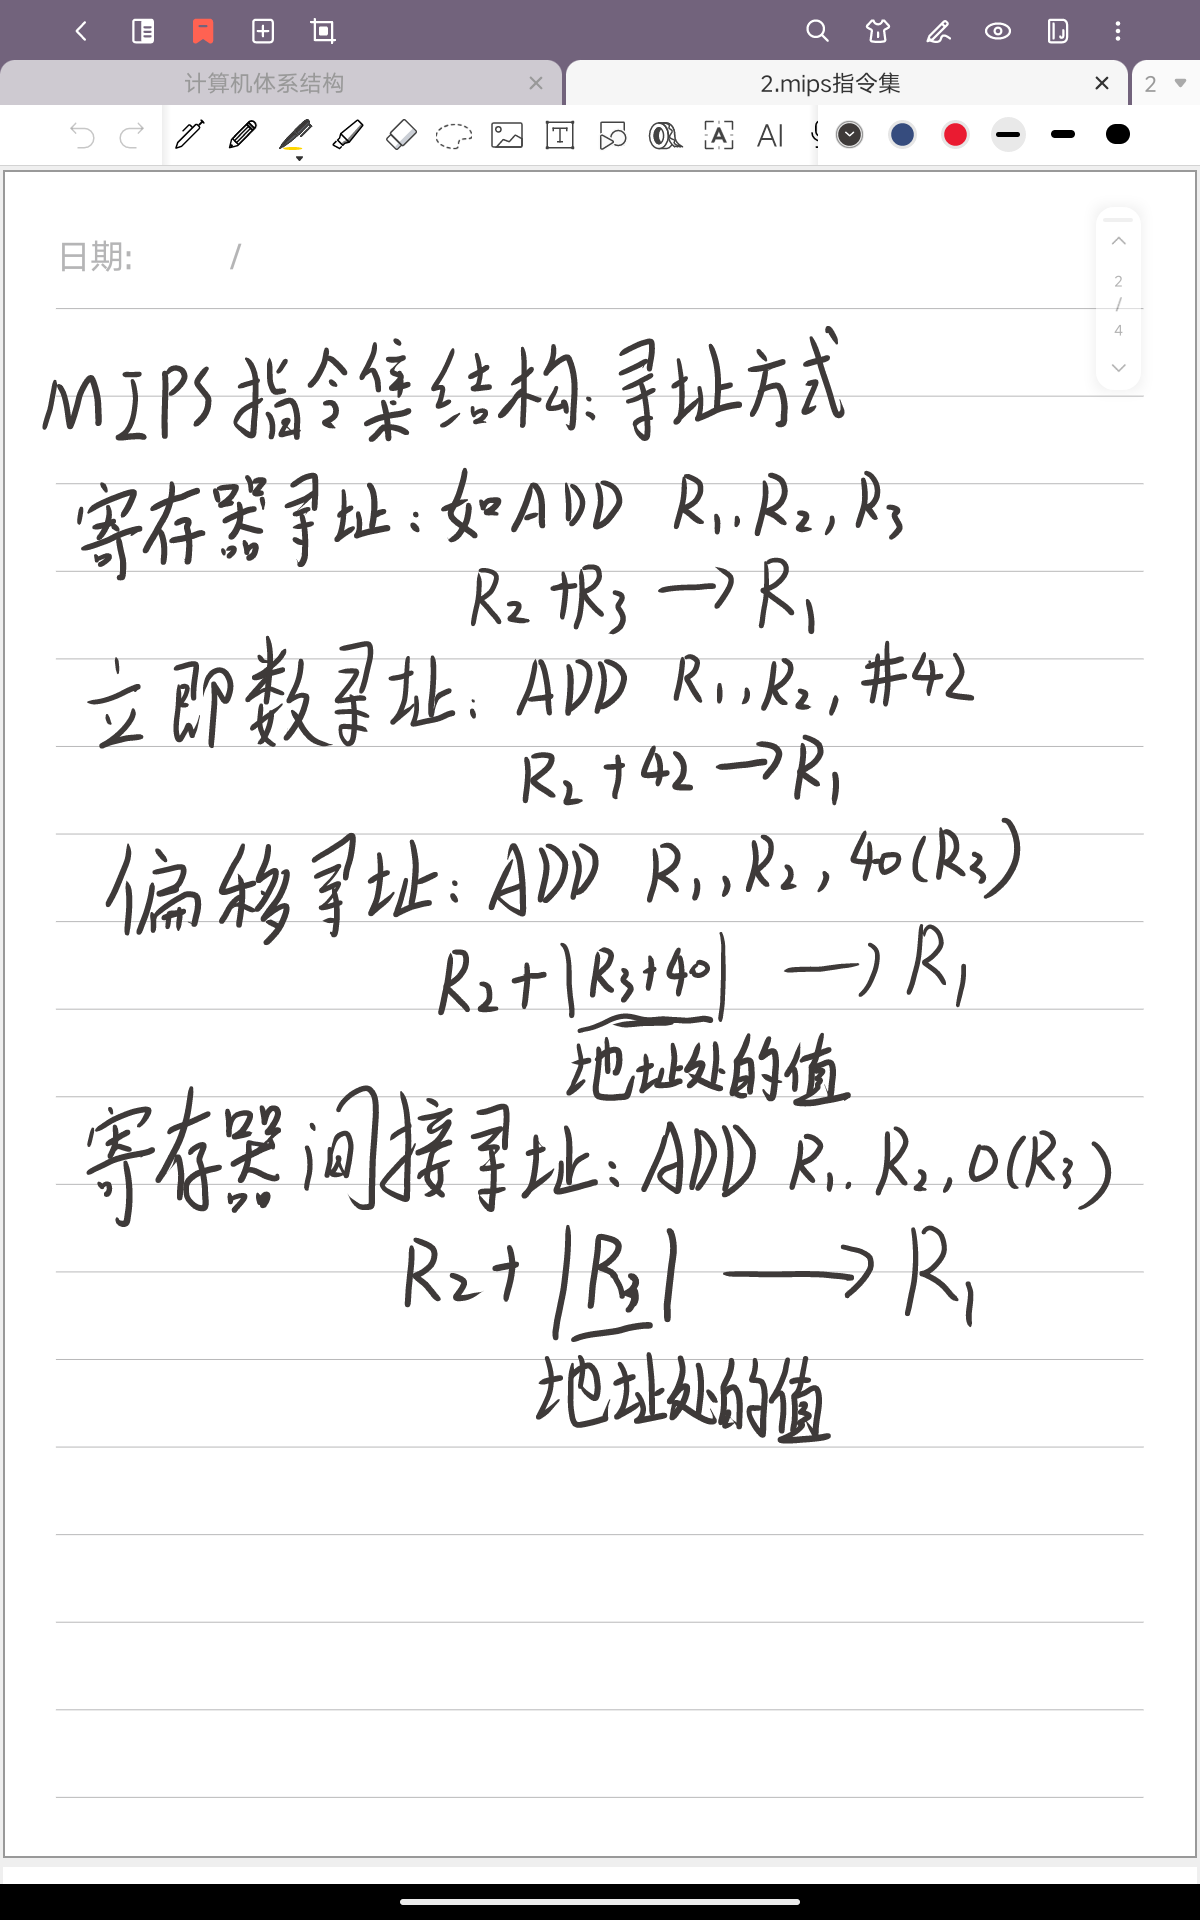 计算机体系结构
2.mips指令集
2
T
A
AI
日期: /
2
/
4
MIPS指令集结构:寻址方式
寄存器寻址:如ADD R1,R2,R3
R2+R3→R1
立即数寻址:ADD R1,R2,#42
R2+42→R1
偏移寻址:ADD R1,R2,40(R3)
R2+|R3+40|→R1
地址处的值
寄存器间接寻址:ADD R1.R2,0(R3)
R2+|R3|→R1
地址处的值